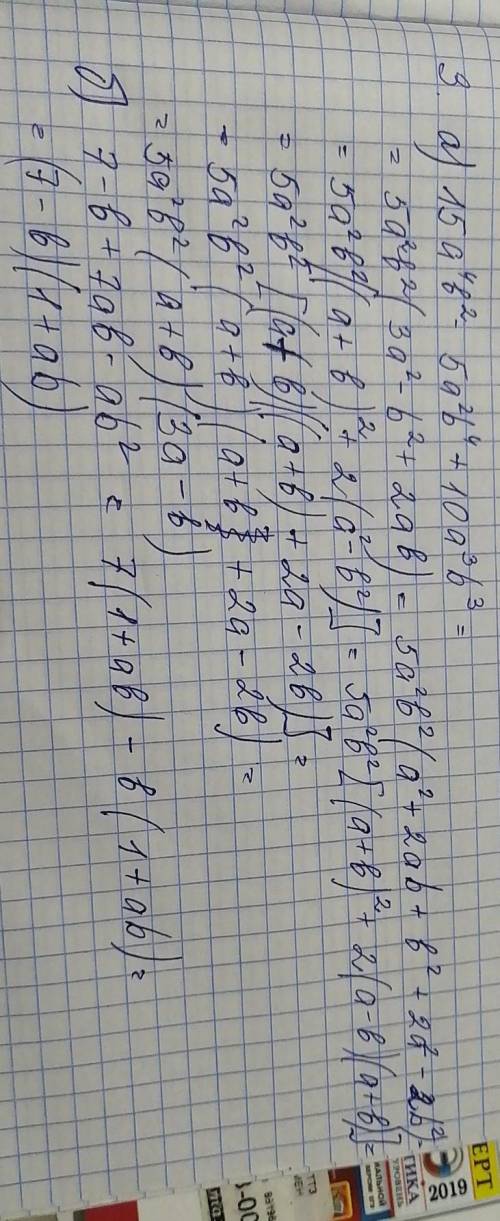 9. а) 15a⁴b² - 5a²b⁴ + 10a³b³ =
= 5a²b²(3a² - b² + 2ab) = 5a²b²(a² + 2ab + b² + 2a² - 2b²) =
= 5a²b²[(a + b)² + 2(a² - b²)] = 5a²b²[(a+b)² + 2(a-b)(a+b)] =
= 5a²b²[(a+b)(a+b) + 2a - 2b)] =
= 5a²b²(a+b)(a+b + 2a - 2b) =
= 5a²b²(a+b)(3a-b)
б) 7 - b + 7ab - ab² = 7(1+ab) - b(1+ab) =
= (7-b)(1+ab)
ЕРТ
2019
ТИКА
УРОВЕНЬ